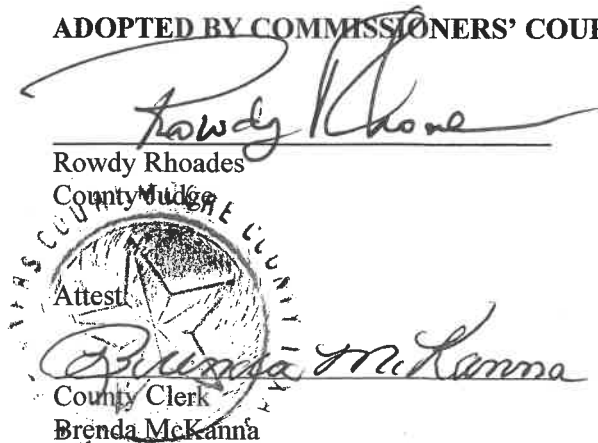 ADOPTED BY COMMISSIONERS' COUR
Rowdy Rhoades
Rowdy Rhoades
County Judge
MOORE COUNTY
Attest
Brenda McKanna
County Clerk
Brenda McKanna